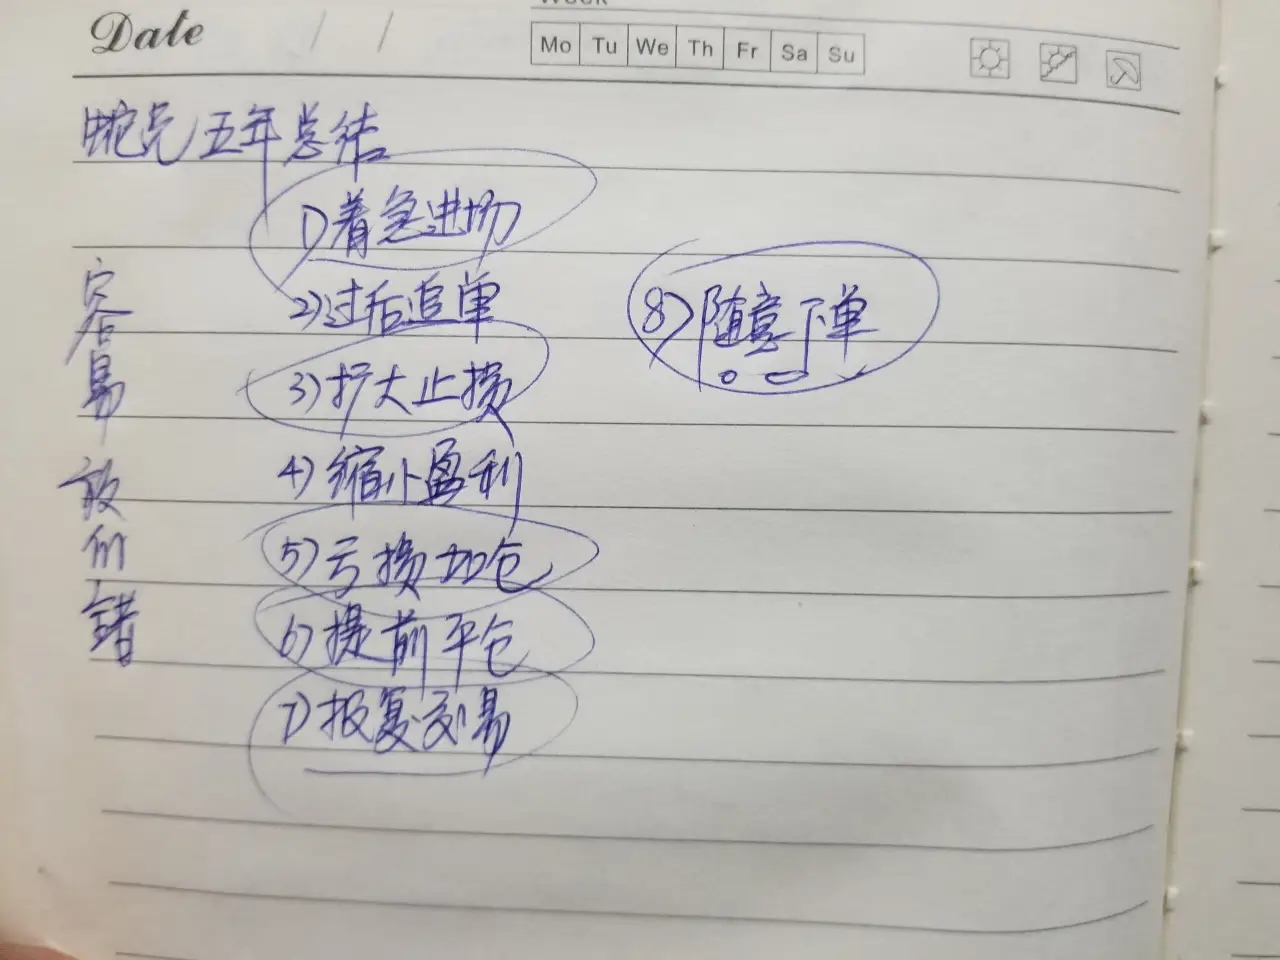 Date / /
Week
Mo Tu We Th Fr Sa Su
五年总结
1)着急进场
2)过后追单
3)扩大止损
4)缩小盈利
5)亏损加仓
6)提前平仓
7)报复交易
8)随意下单
容易放的错